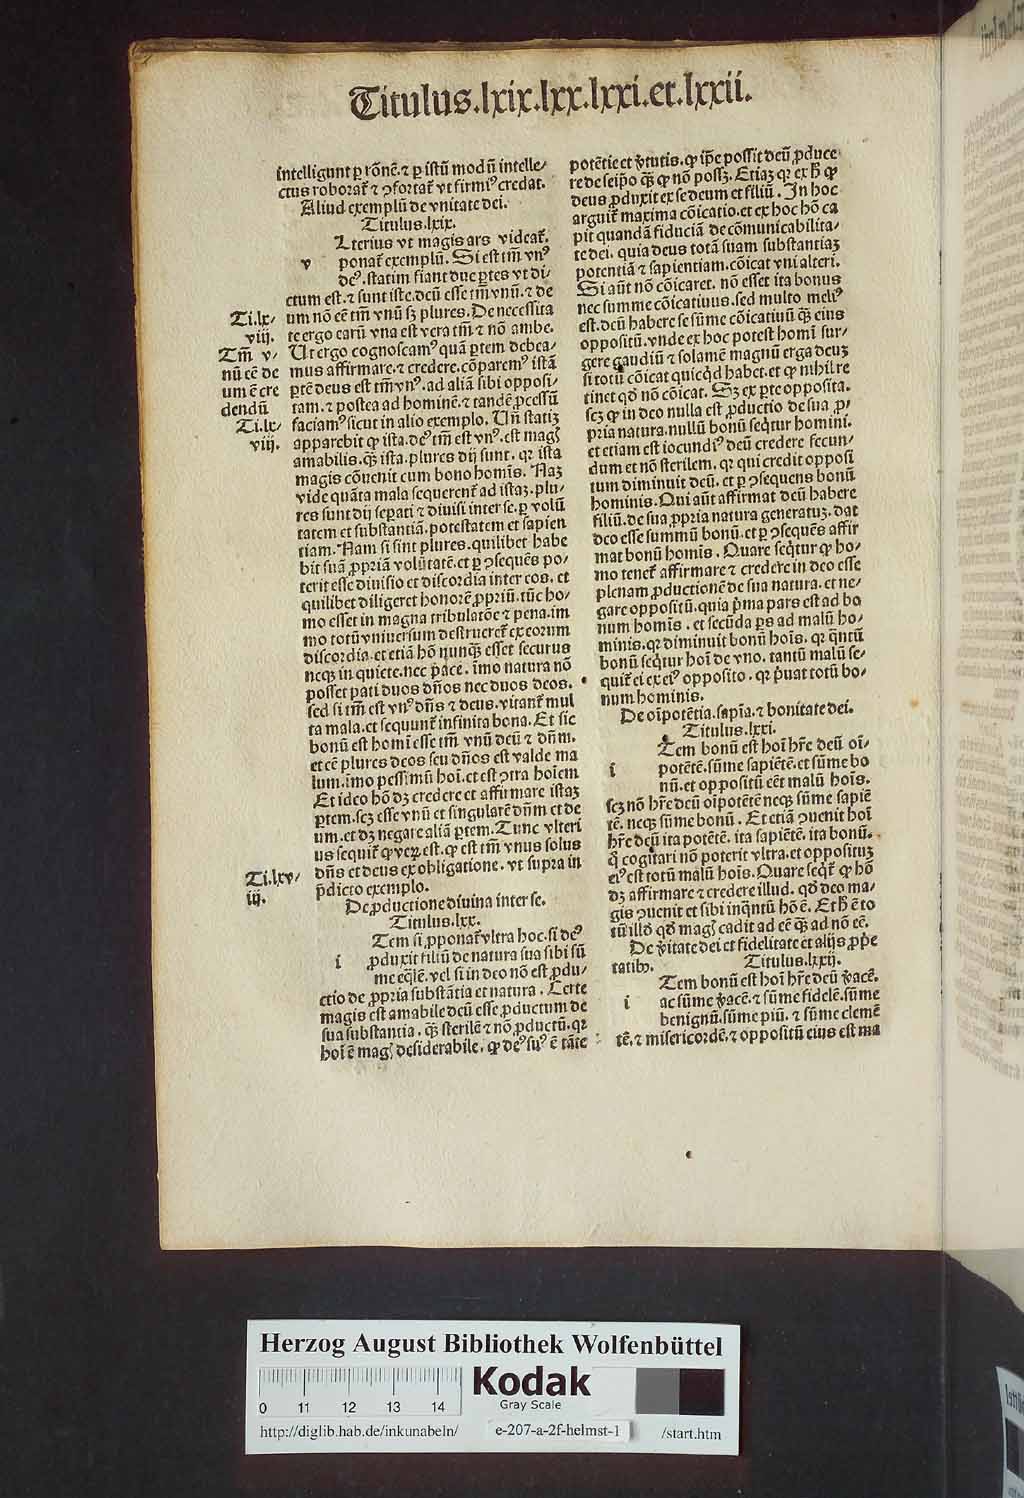 Titulus.lxix.lxx.lxxi.et.lxxii.
intelligunt ꝑ rõnẽ.⁊ ꝑ istũ modũ intelle⸗
ctus roborat᷑ ⁊ ↄfortat᷑ vt firmiꝰ credat.
Aliud exemplũ de vnitate dei.
Titulus.lxix.
Lterius vt magis ars videat᷑.
v ponat᷑ exemplũ. Si est tm̃ vnꝰ
deꝰ.statim fiant due ꝑtes vt di⸗
ctum est.⁊ sunt iste.deũ esse tm̃ vnũ.⁊ de
um nõ eẽ tm̃ vnũ sꝫ plures. De necessita
te ergo earũ vna est vera tm̃ ⁊ nõ ambe.
Ut ergo cognoscamꝰ quã ꝑtem debea⸗
mus affirmare.⁊ credere.cõparemꝰ istã
ꝑtẽ deus est tm̃ vnꝰ.ad aliã sibi opposi⸗
tam.⁊ postea ad hominẽ.⁊ tandẽ ꝓcessũ
faciamꝰ sicut in alio exemplo. Un̄ statiꝫ
apparebit ꝙ ista.deꝰ tm̃ est vnꝰ.est magꝭ
amabilis.qᷓꝫ ista.plures dij sunt. qꝛ ista
magis cõuenit cum bono homĩs. Naꝫ
vide quãta mala sequerent᷑ ad istaꝫ.plu⸗
res sunt dij seꝑati ⁊ diuisi inter se.ꝑ volũ
tatem et substantiã.potestatem et sapien
tiam. Nam si sint plures.quilibet habe
bit suã ꝓpriã volũtatẽ.et ꝑ ↄsequẽs po⸗
terit esse diuisio et discordia inter eos. et
quilibet diligeret honorẽ ꝓpriũ.tũc ho⸗
mo esset in magna tribulatõe ⁊ pena.im
mo totũ vniuersum destrueret᷑ ex eorum
discordia.et etiã hõ nunqᷓꝫ esset securus
neqꝫ in quiete.nec p̃ace. ĩmo natura nõ
posset pati duos dños nec duos deos.
sed si tm̃ est vnꝰ dñs ⁊ deus.vitant᷑ mul
ta mala.et sequunt᷑ infinita bona. Et sic
bonũ est homĩ esse tm̃ vnũ deũ ⁊ dñm.
et eẽ plures deos seu dños est valde ma
lum.ĩmo pessimũ hoĩ.et est ↄtra hoĩem
Et ideo hõ dꝫ credere et affirmare istaꝫ
ꝑtem.scꝫ esse vnũ et singularẽ dñm et de
um.et dꝫ negare aliã ꝑtem. Tunc vlteri
us sequit᷑ ꝙ veꝝ est.ꝙ est tm̃ vnus solus
dñs et deus ex obligatione. vt supra in
p̃dicto exemplo.
De ꝓductione diuina inter se.
Titulus.lxx.
Tem si ꝓponat᷑ vltra hoc.si deꝰ
i ꝓduxit filiũ de natura sua sibi sũ
me eq̃lẽ.vel si in deo nõ est ꝓdu⸗
ctio de ꝓpria substãtia et natura. Certe
magis est amabile deũ esse ꝓductum de
sua substantia.qᷓꝫ sterilẽ ⁊ nõ ꝓductũ.qꝛ
hoĩ ẽ magꝭ desiderabile.ꝙ deꝰ suꝰ ẽ tãte
Ti.lx⸗
viij.
Tm̃ v⸗
nũ eẽ de
um ẽ cre
dendũ
Ti.lx⸗
viij.
Ti.lxv⸗
iij.
potẽtie et v̓tutis.ꝙ ip̃e possit deũ ꝓduce
re de seip̃o qᷓꝫ ꝙ nõ possꝫ. Etiaꝫ qꝛ ex hͦ ꝙ
deus ꝓduxit ex se deum et filiũ. In hoc
arguit᷑ maxima cõicatio.et ex hoc hõ ca
pit quandã fiduciã de cõmunicabilita⸗
te dei. quia deus totã suam substantiaꝫ
potentiã ⁊ sapientiam.cõicat vni alteri.
Si aũt nõ cõicaret. nõ esset ita bonus
nec summe cõicatiuus.sed multo meliꝰ
est.deũ habere se sũme cõicatiuũ qᷓꝫ eius
oppositũ.vnde ex hoc potest homĩ sur⸗
gere gaudiũ ⁊ solamẽ magnũ erga deuꝫ
si totũ cõicat quicqͥd habet.et ꝙ nihil re
tinet qd̃ nõ cõicat. Sꝫ ex ꝑte opposita.
scꝫ ꝙ in deo nulla est ꝓductio de sua ꝓ⸗
pria natura.nullũ bonũ seqͥtur homini.
et etiam est iocundiꝰ deũ credere fecun⸗
dum et nõ sterilem. qꝛ qui credit opposi
tum diminuit deũ. et ꝑ ↄsequens bonũ
hominis. Qui aũt affirmat deũ habere
filiũ.de sua ꝓpria natura generatuꝫ. dat
deo esse summũ bonũ.et ꝑ ↄsequẽs affir
mat bonũ homĩs. Quare seqͥtur ꝙ ho⸗
mo tenet᷑ affirmare ⁊ credere in deo esse
plenam ꝓductionẽ de sua natura.et ne⸗
gare oppositũ.quia p̃ma pars est ad bo
num homĩs . et secũda ꝑs ad malũ ho⸗
minis.qꝛ diminuit bonũ hoĩs. qꝛ qᷓntũ
bonũ seqͥtur hoĩ de vno. tantũ malũ se⸗
quit᷑ ei ex eiꝰ opposito. qꝛ p̃uat totũ bo⸗
num hominis.
De oĩpotẽtia.sapĩa.⁊ bonitate dei.
Titulus.lxxi.
Tem bonũ est hoĩ hr̃e deũ oĩ⸗
i potẽtẽ.sũme sapiẽtẽ.et sũme bo
nũ.et oppositũ eẽt malũ hoĩs.
scꝫ nõ hr̃e deũ oĩpotẽtẽ neqꝫ sũme sapiẽ
tẽ. neqꝫ sũme bonũ. Et etiã ↄuenit hoĩ
hr̃e deũ ita potẽtẽ. ita sapiẽtẽ. ita bonũ.
qͥ cogitari nõ poterit vltra.et oppositũ
eiꝰ est totũ malũ hoĩs. Quare seqͥt᷑ ꝙ hõ
dꝫ affirmare ⁊ credere illud. qd̃ deo ma⸗
gis ↄuenit et sibi inqᷓntũ hõ ẽ. Et hͦ ẽ to
tũ illd̃ qd̃ magꝭ cadit ad eẽ qᷓꝫ ad nõ eẽ.
De v̓itate dei et fidelitate et alijs ꝓp̃e
tatibꝰ. Titulus.lxxij.
Tem bonũ est hoĩ hr̃e deũ v̓acẽ.
i ac sũme v̓acẽ.⁊ sũme fidelẽ.sũme
benignũ.sũme piũ. ⁊ sũme clemẽ
tẽ.⁊ misericordẽ.⁊ oppositũ eius est ma
Herzog August Bibliothek Wolfenbüttel
Kodak
Gray Scale
0 11 12 13 14
http://diglib.hab.de/inkunabeln/ e-207-a-2f-helmst-1 /start.htm